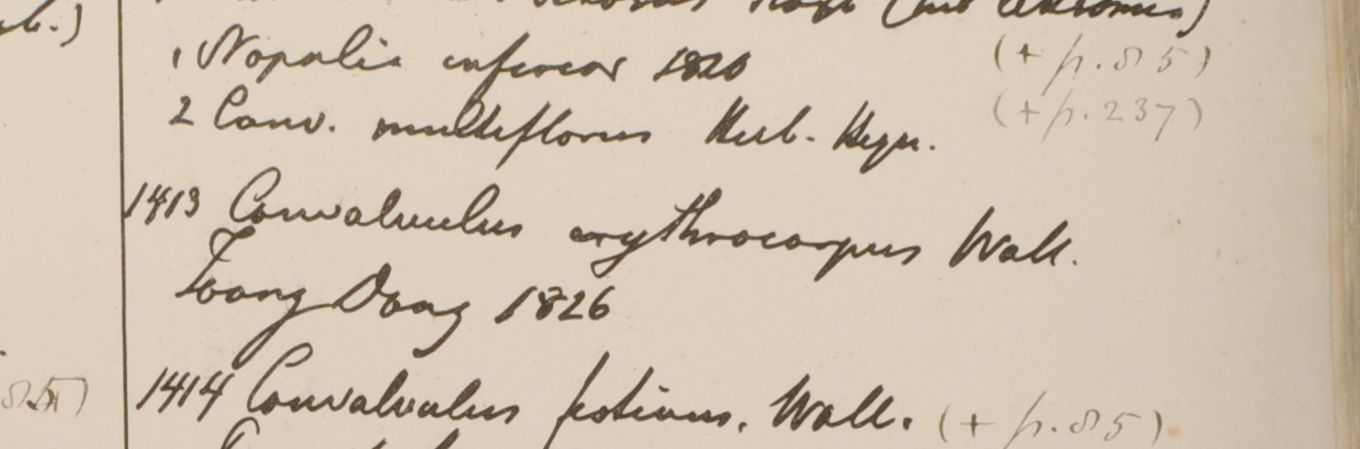 Roxb (sub
1 Napalia inferior 1820 (+ p. 85)
2 Conv. multiflorus Herb. Heyn. (+ p. 237)
1413 Convalvulus erythrocarpus Wall.
Toong Dong 1826
1414 Convalvulus Wall. (+ p. 85)